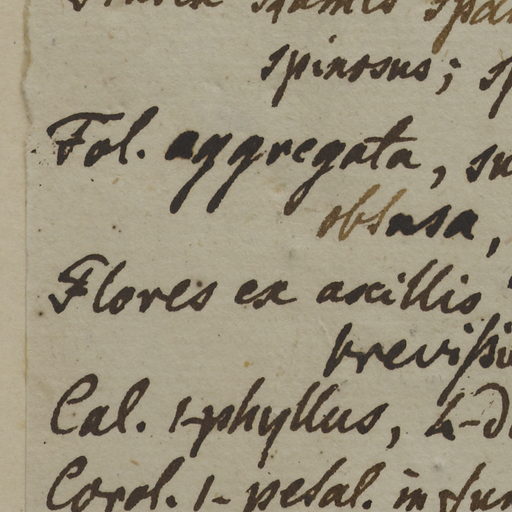 spinosus; sp
Fol. aggregata, su
obtusa,
Flores ex axillis
brevissi
Cal. 1-phyllus, 4-d
Corol. 1-petal. infun